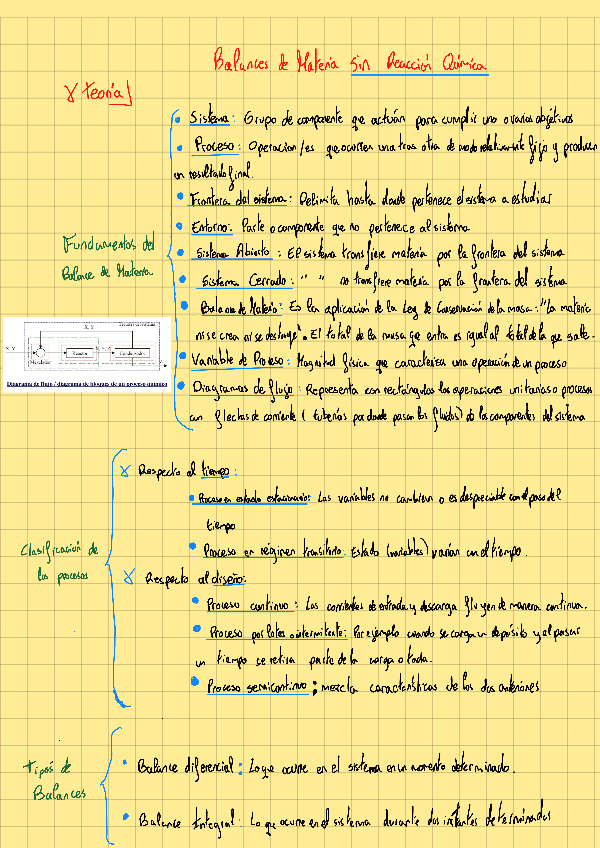 Balances de Materia Sin Reacción Química
Teoría
• Sistema: Grupo de componente que actúan para cumplir uno o varios objetivos
• Proceso: Operacion/es que ocurren una tras otra de modo relativamente fijo y producen
un resultado final.
• Frontera del sistema: Delimita hasta donde pertenece el sistema a estudiar
• Entorno: Parte o componente que no pertenece al sistema
Fundamentos del
Balance de Materia
• Sistema Abierto: El sistema transfiere materia por la frontera del sistema
• Sistema Cerrado: " " no transfiere materia por la frontera del sistema
• Balance de Materia: Es la aplicación de la Ley de Conservación de la masa: "La materia
ni se crea ni se destruye". El total de la masa que entra es igual al total de la que sale.
• Variable de Proceso: Magnitud física que caracteriza una operación de un proceso
• Diagramas de flujo: Representa con rectángulos las operaciones unitarias o procesos
con flechas de corriente (tuberías por donde pasan los fluidos) de los componentes del sistema
X, Y
Frontera del sistema
X, Y
Mezclador
Reactor
Condensador
Diagrama de flujo / diagrama de bloques de un proceso químico
Clasificación de
los procesos
Respecto al tiempo:
• Proceso en estado estacionario: Las variables no cambian o es despreciable con el paso del
tiempo
• Proceso en régimen transitorio: Estado (variables) varían con el tiempo.
Respecto al diseño:
• Proceso continuo: Las corrientes de entrada y descarga fluyen de manera continua.
• Proceso por lotes o intermitente: Por ejemplo cuando se carga un depósito y al pasar
un tiempo se retira parte de la carga o toda.
• Proceso semicontinuo: mezcla características de los dos anteriores
Tipos de
Balances
• Balance diferencial: Lo que ocurre en el sistema en un momento determinado.
• Balance Integral: Lo que ocurre en el sistema durante dos instantes determinados